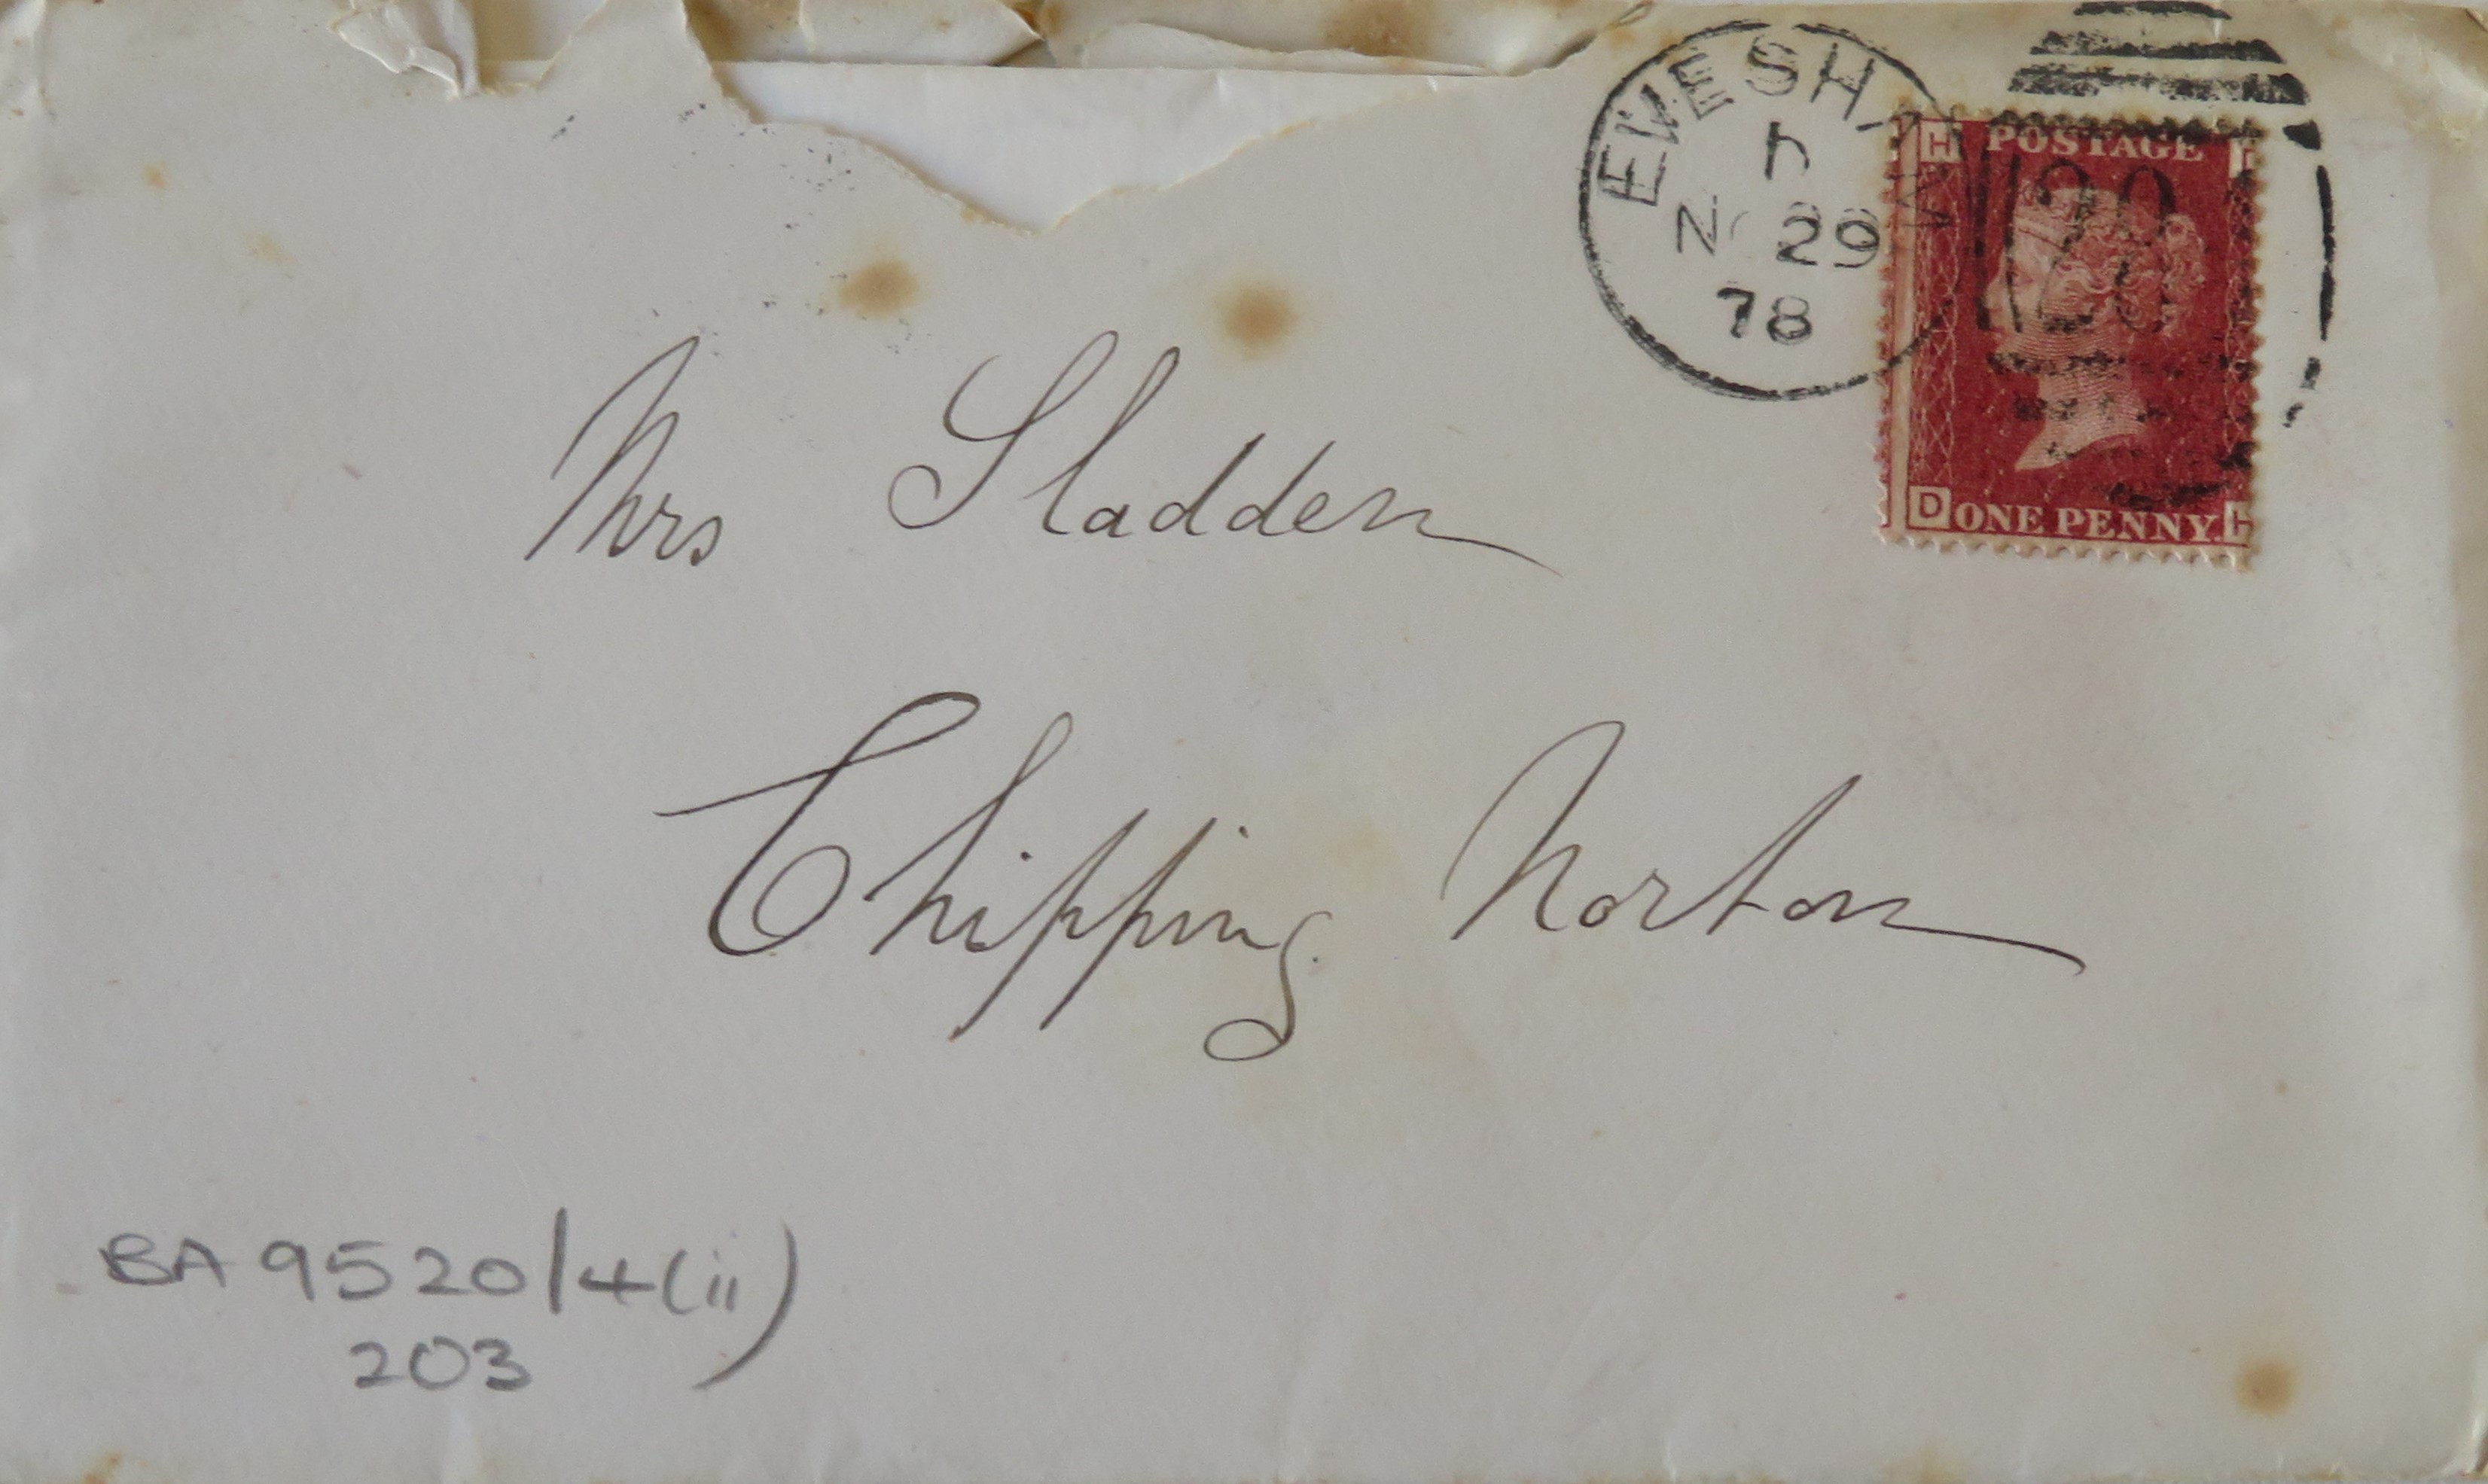 EVESHAM
D
NO 29
78
H POSTAGE
D ONE PENNY. H
Mrs Sladden
Chipping Norton
BA 9520/4(ii)
203